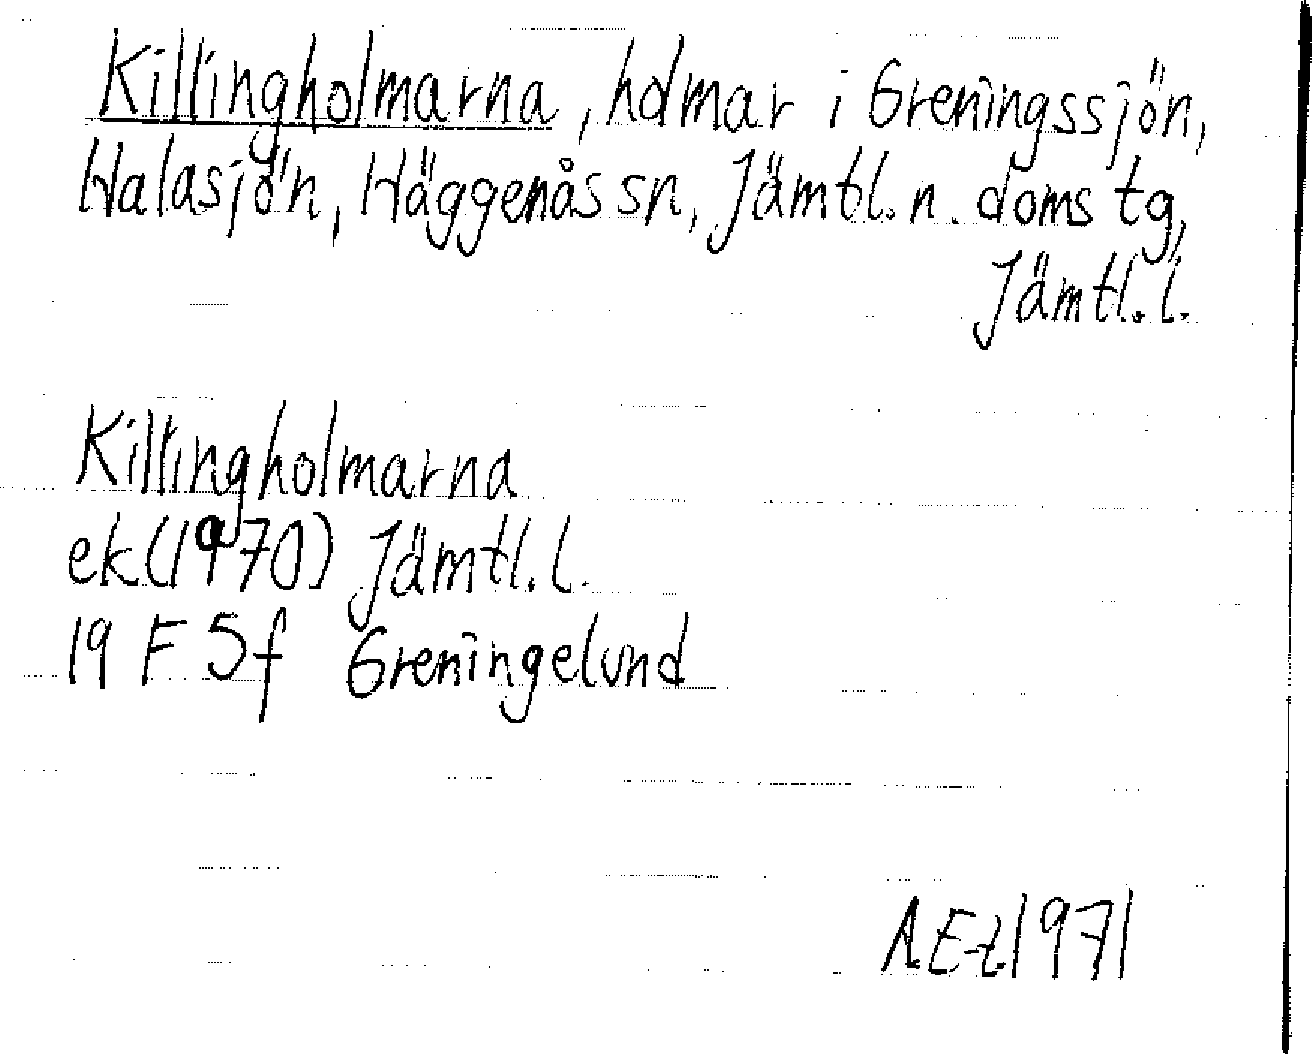 Killingholmarna, holmar i Greningssjön,
Halasjön, Häggenås sn, Jämtl. n. doms tg,
Jämtl. l.
Killingholmarna
ek (1970) Jämtl. l.
19 F 5f Greningelund
A.E-t. 1971